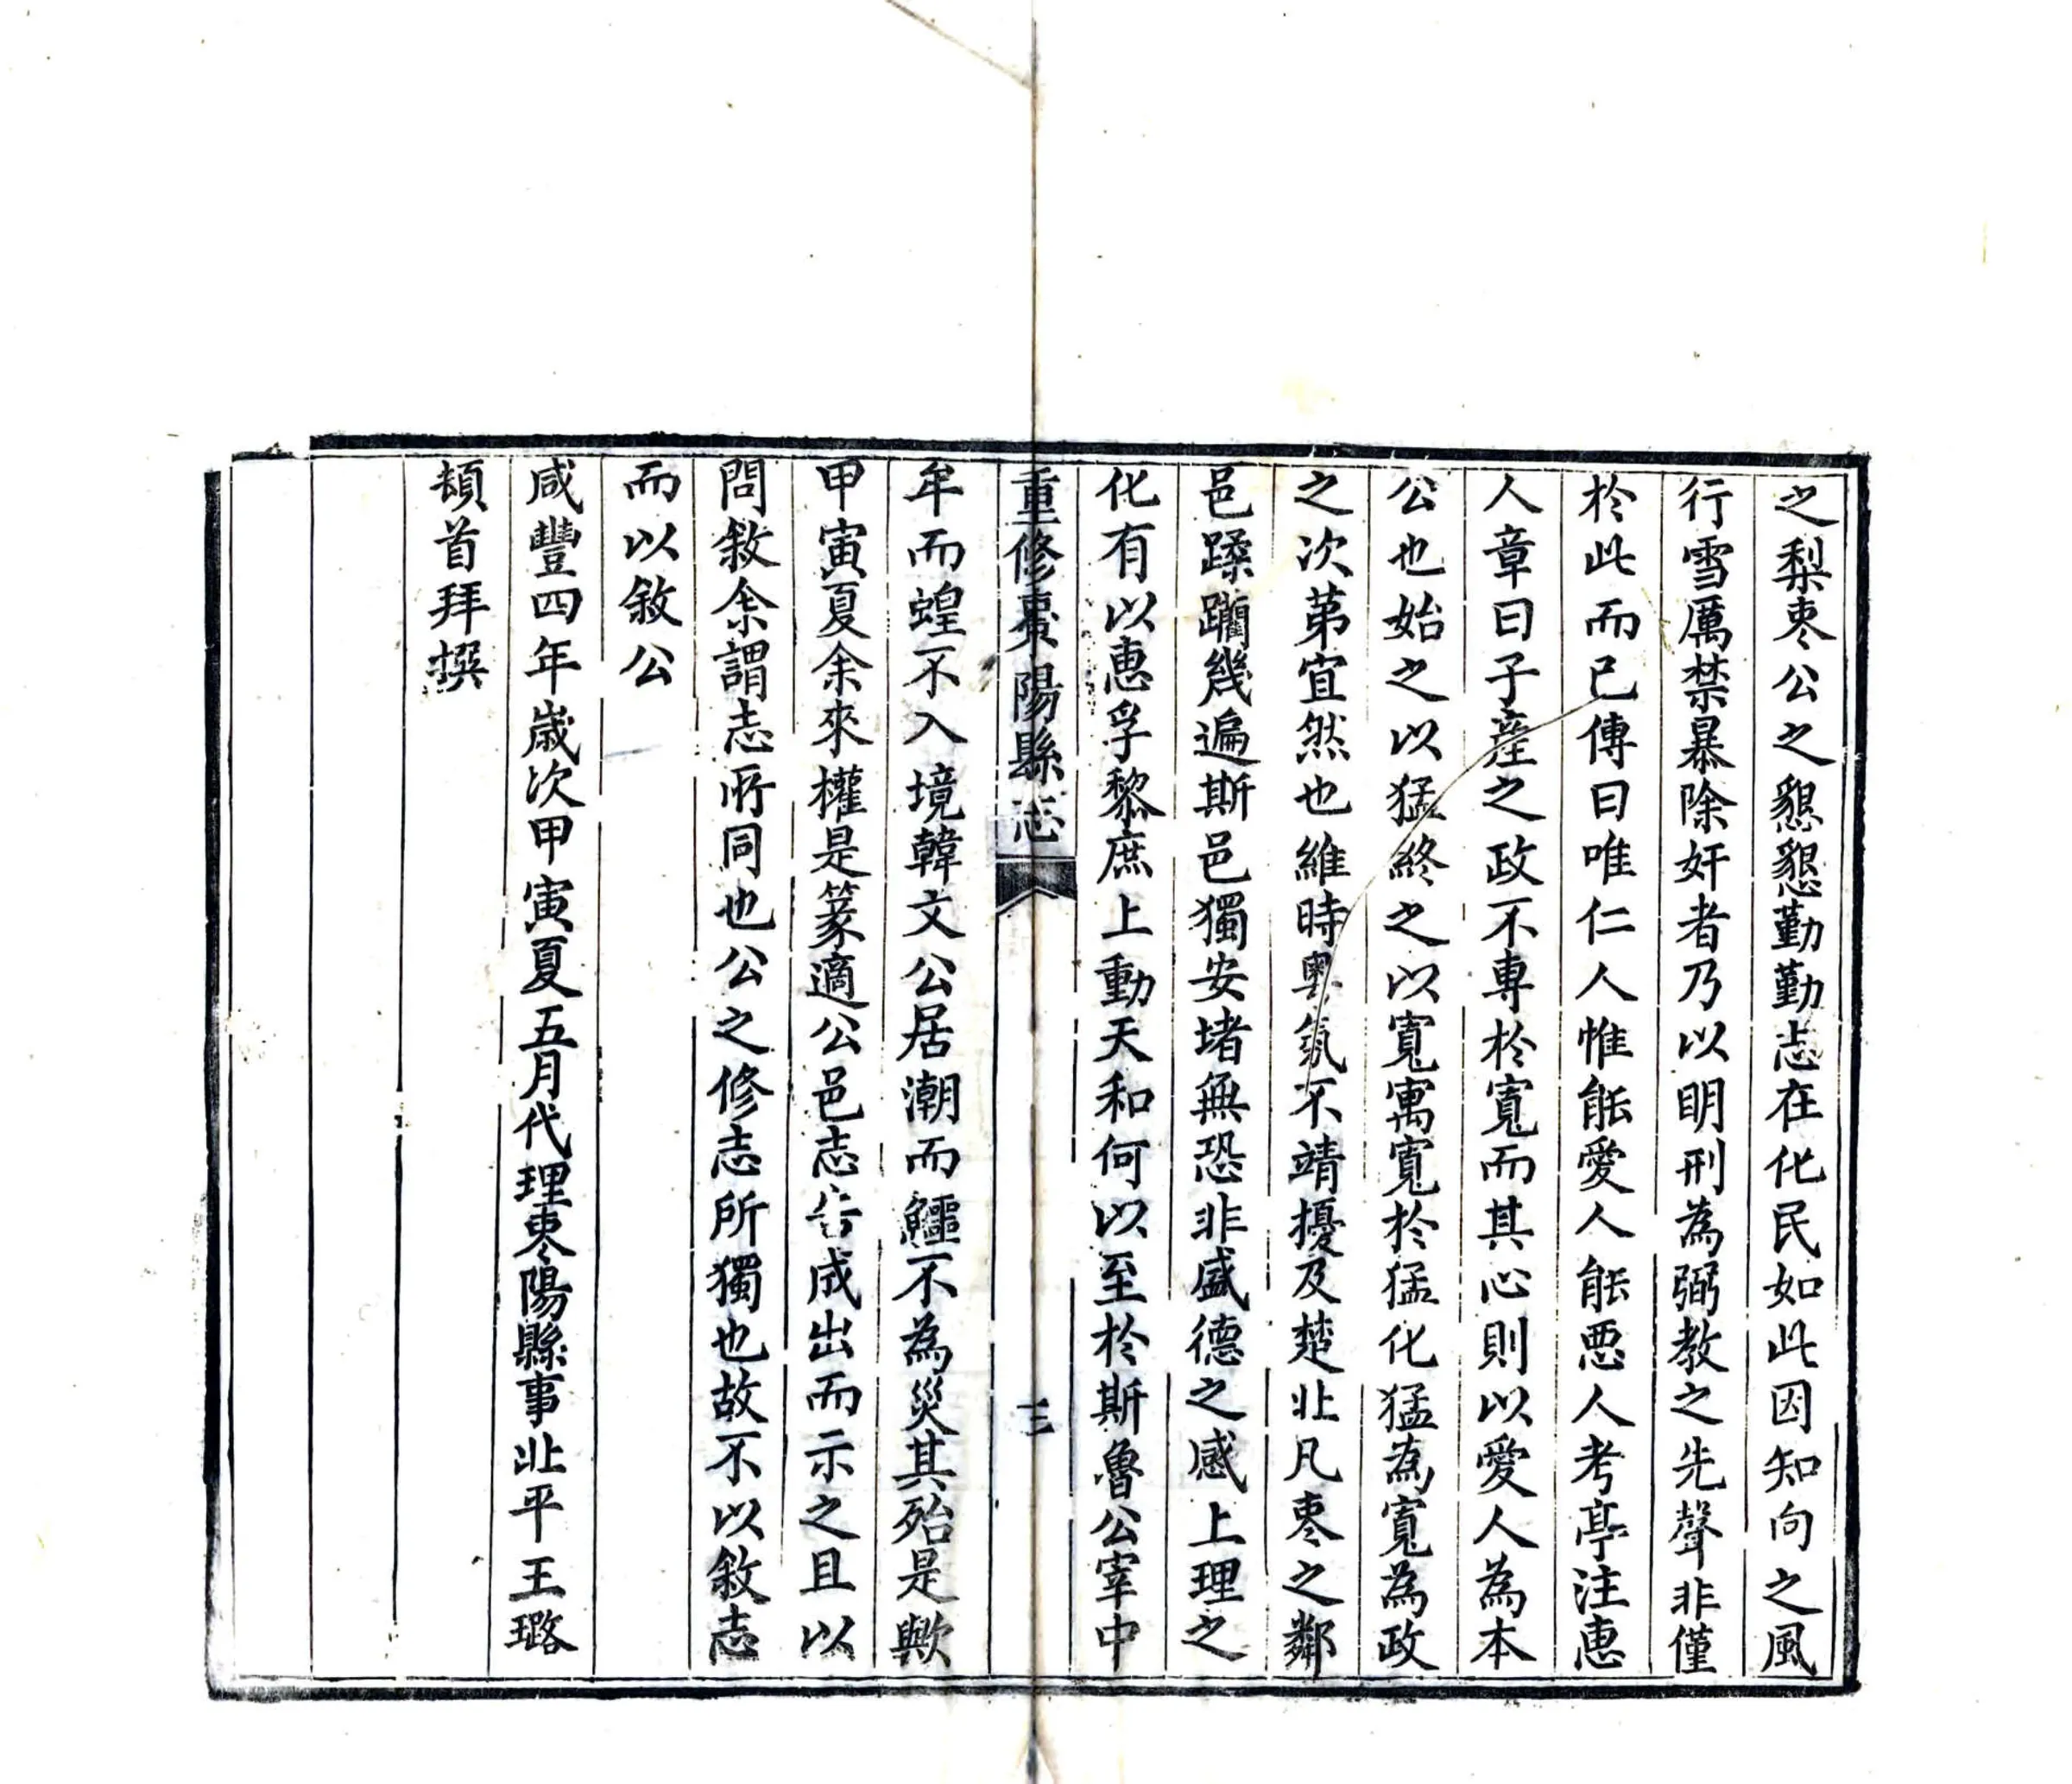 之梨枣公之懇懇勤勤志在化民如此因知向之風
行雪厲禁暴除奸者乃以明刑為弼教之先聲非僅
於此而已傳曰唯仁人惟能愛人能惡人考亭注惠
人章曰子產之政不專於寬而其心則以愛人為本
公也始之以猛終之以寬寓寬於猛化猛為寬為政
之次第宜然也維時粵氛不靖擾及楚北凡枣之鄰
邑蹂躪幾遍斯邑獨安堵無恐非盛德之感上理之
化有以惠孚黎庶上動天和何以至於斯魯公宰中
重修棗陽縣志
三
牟而蝗不入境韓文公居潮而鱷不為災其殆是歟
甲寅夏余來權是篆適公邑志告成出而示之且以
問敘余謂志所同也公之修志所獨也故不以敘志
而以敘公
咸豐四年歲次甲寅夏五月代理枣陽縣事北平王璐
頓首拜撰